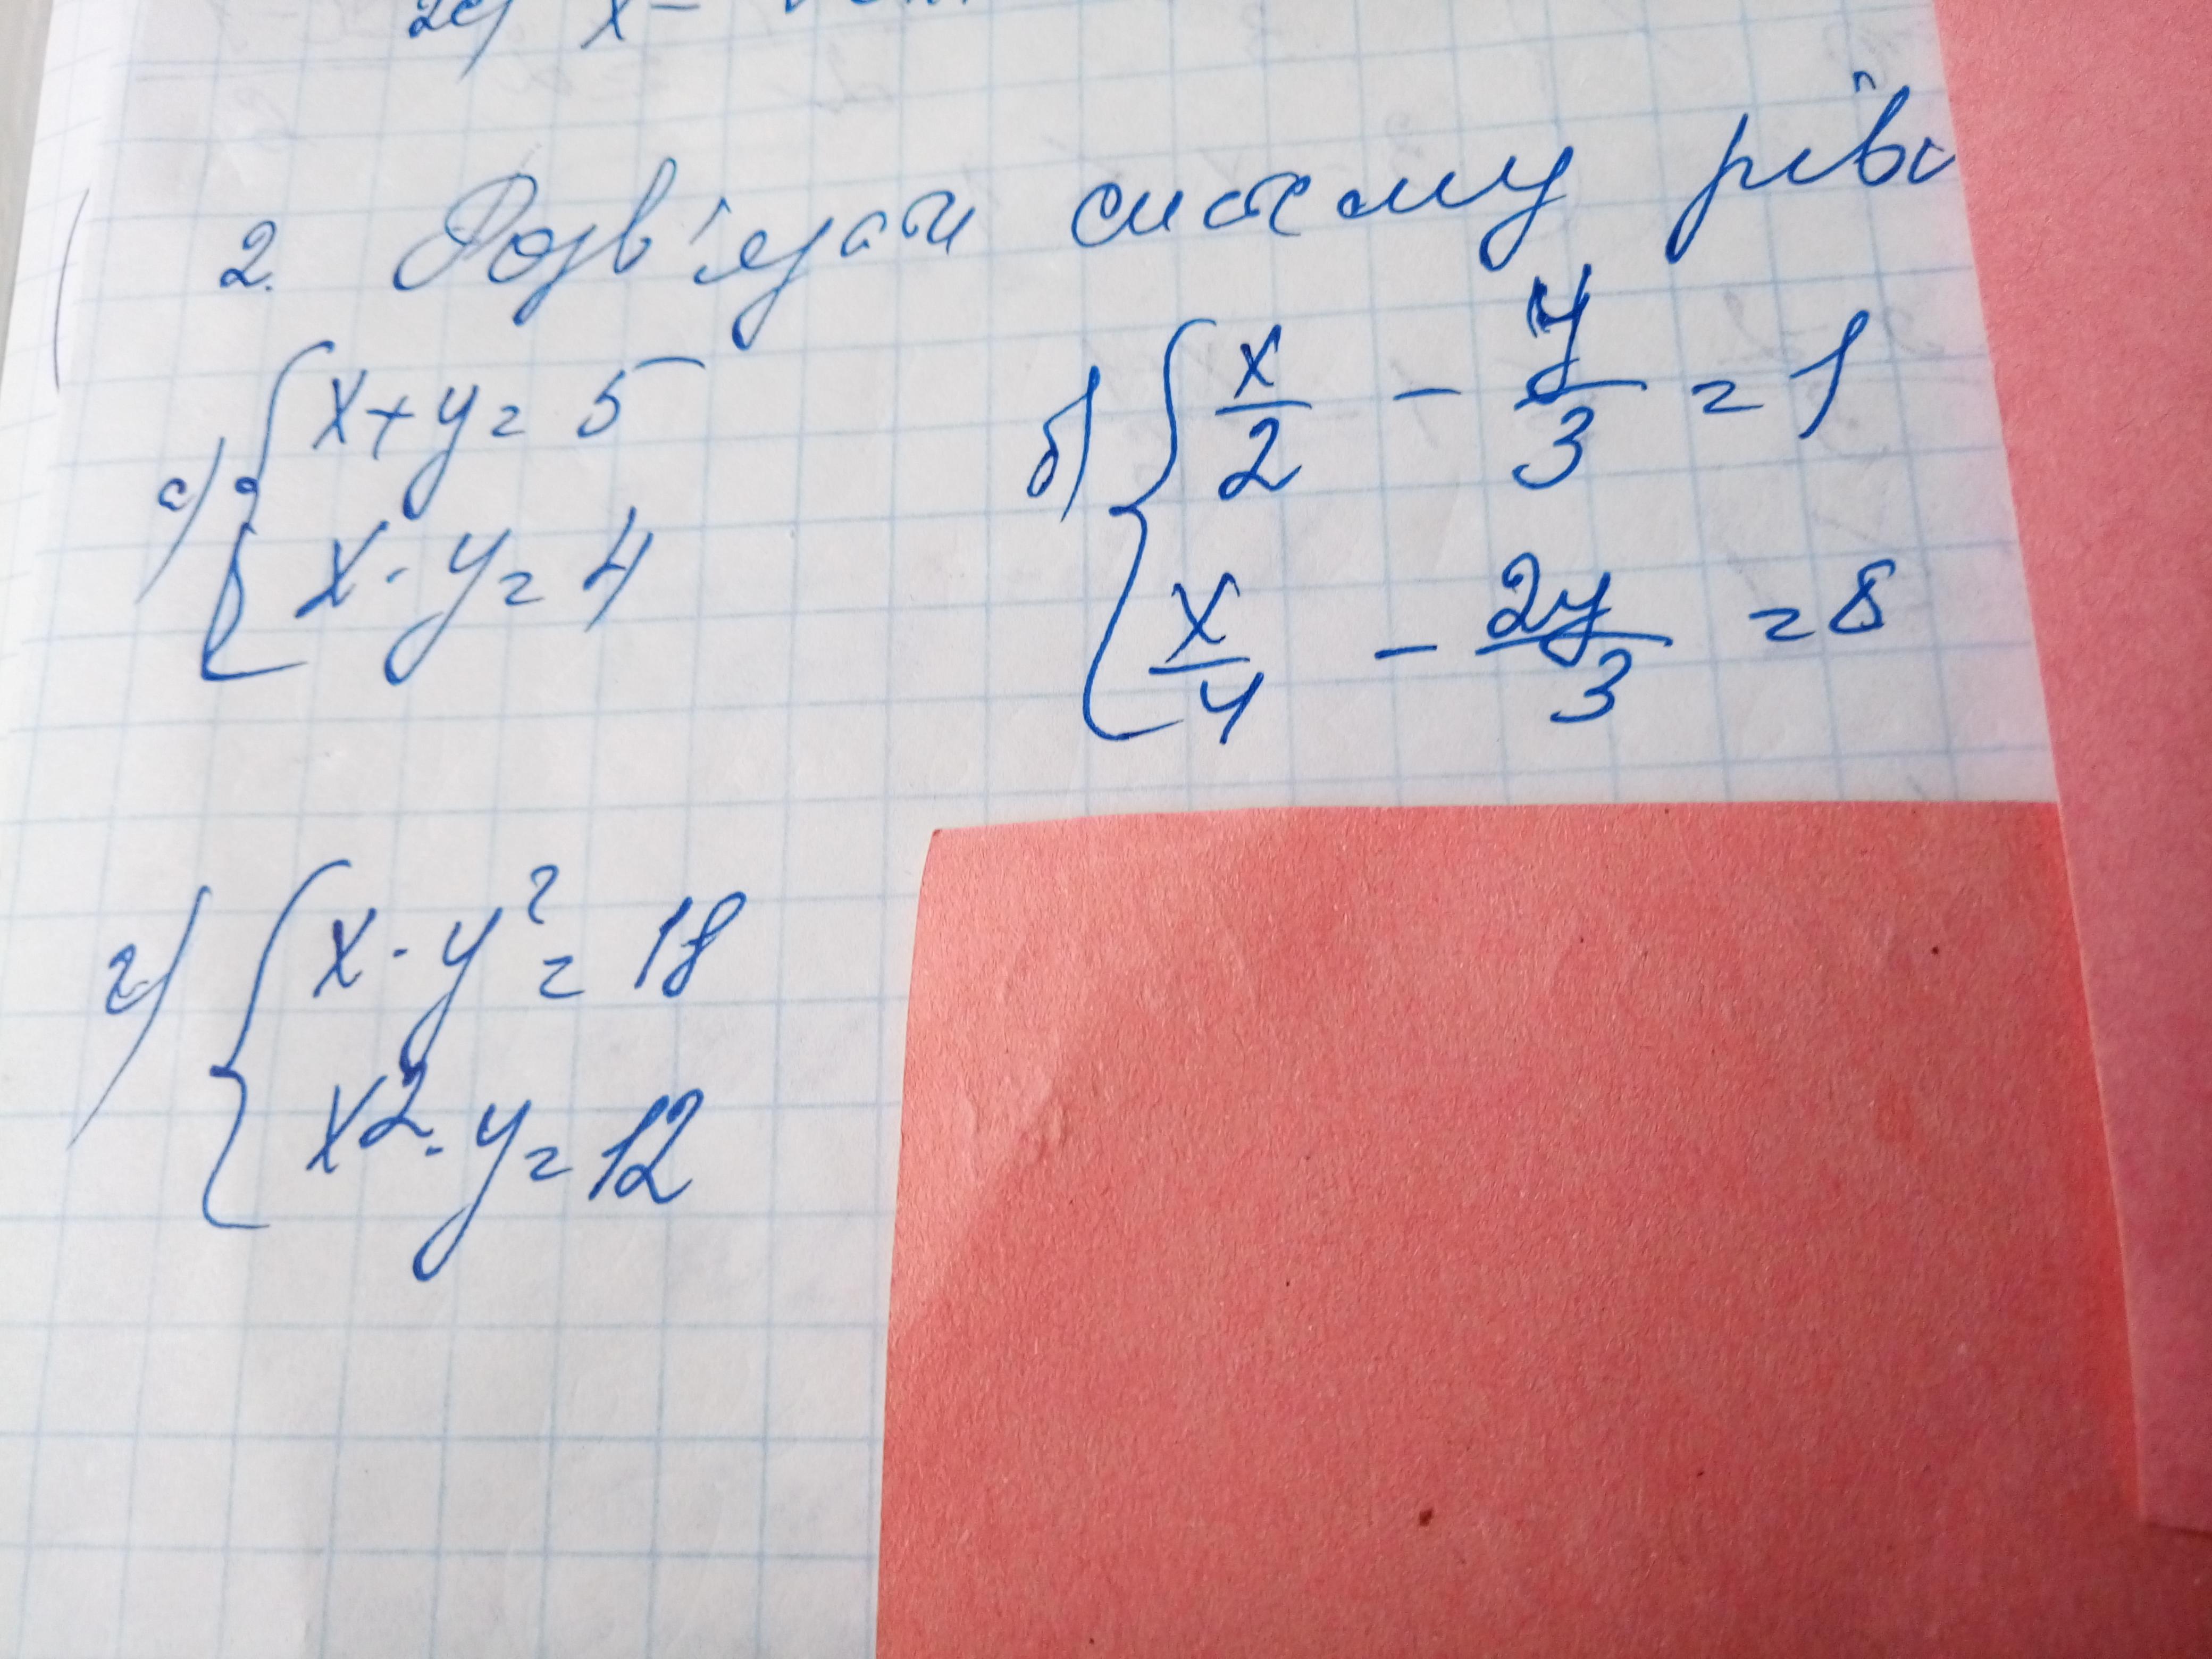 2. Розв'язати систему рівн
а) { x + y = 5
x - y = 4
б) { x/2 - y/3 = 1
x/4 - 2y/3 = 8
г) { x - y² = 18
x² - y = 12